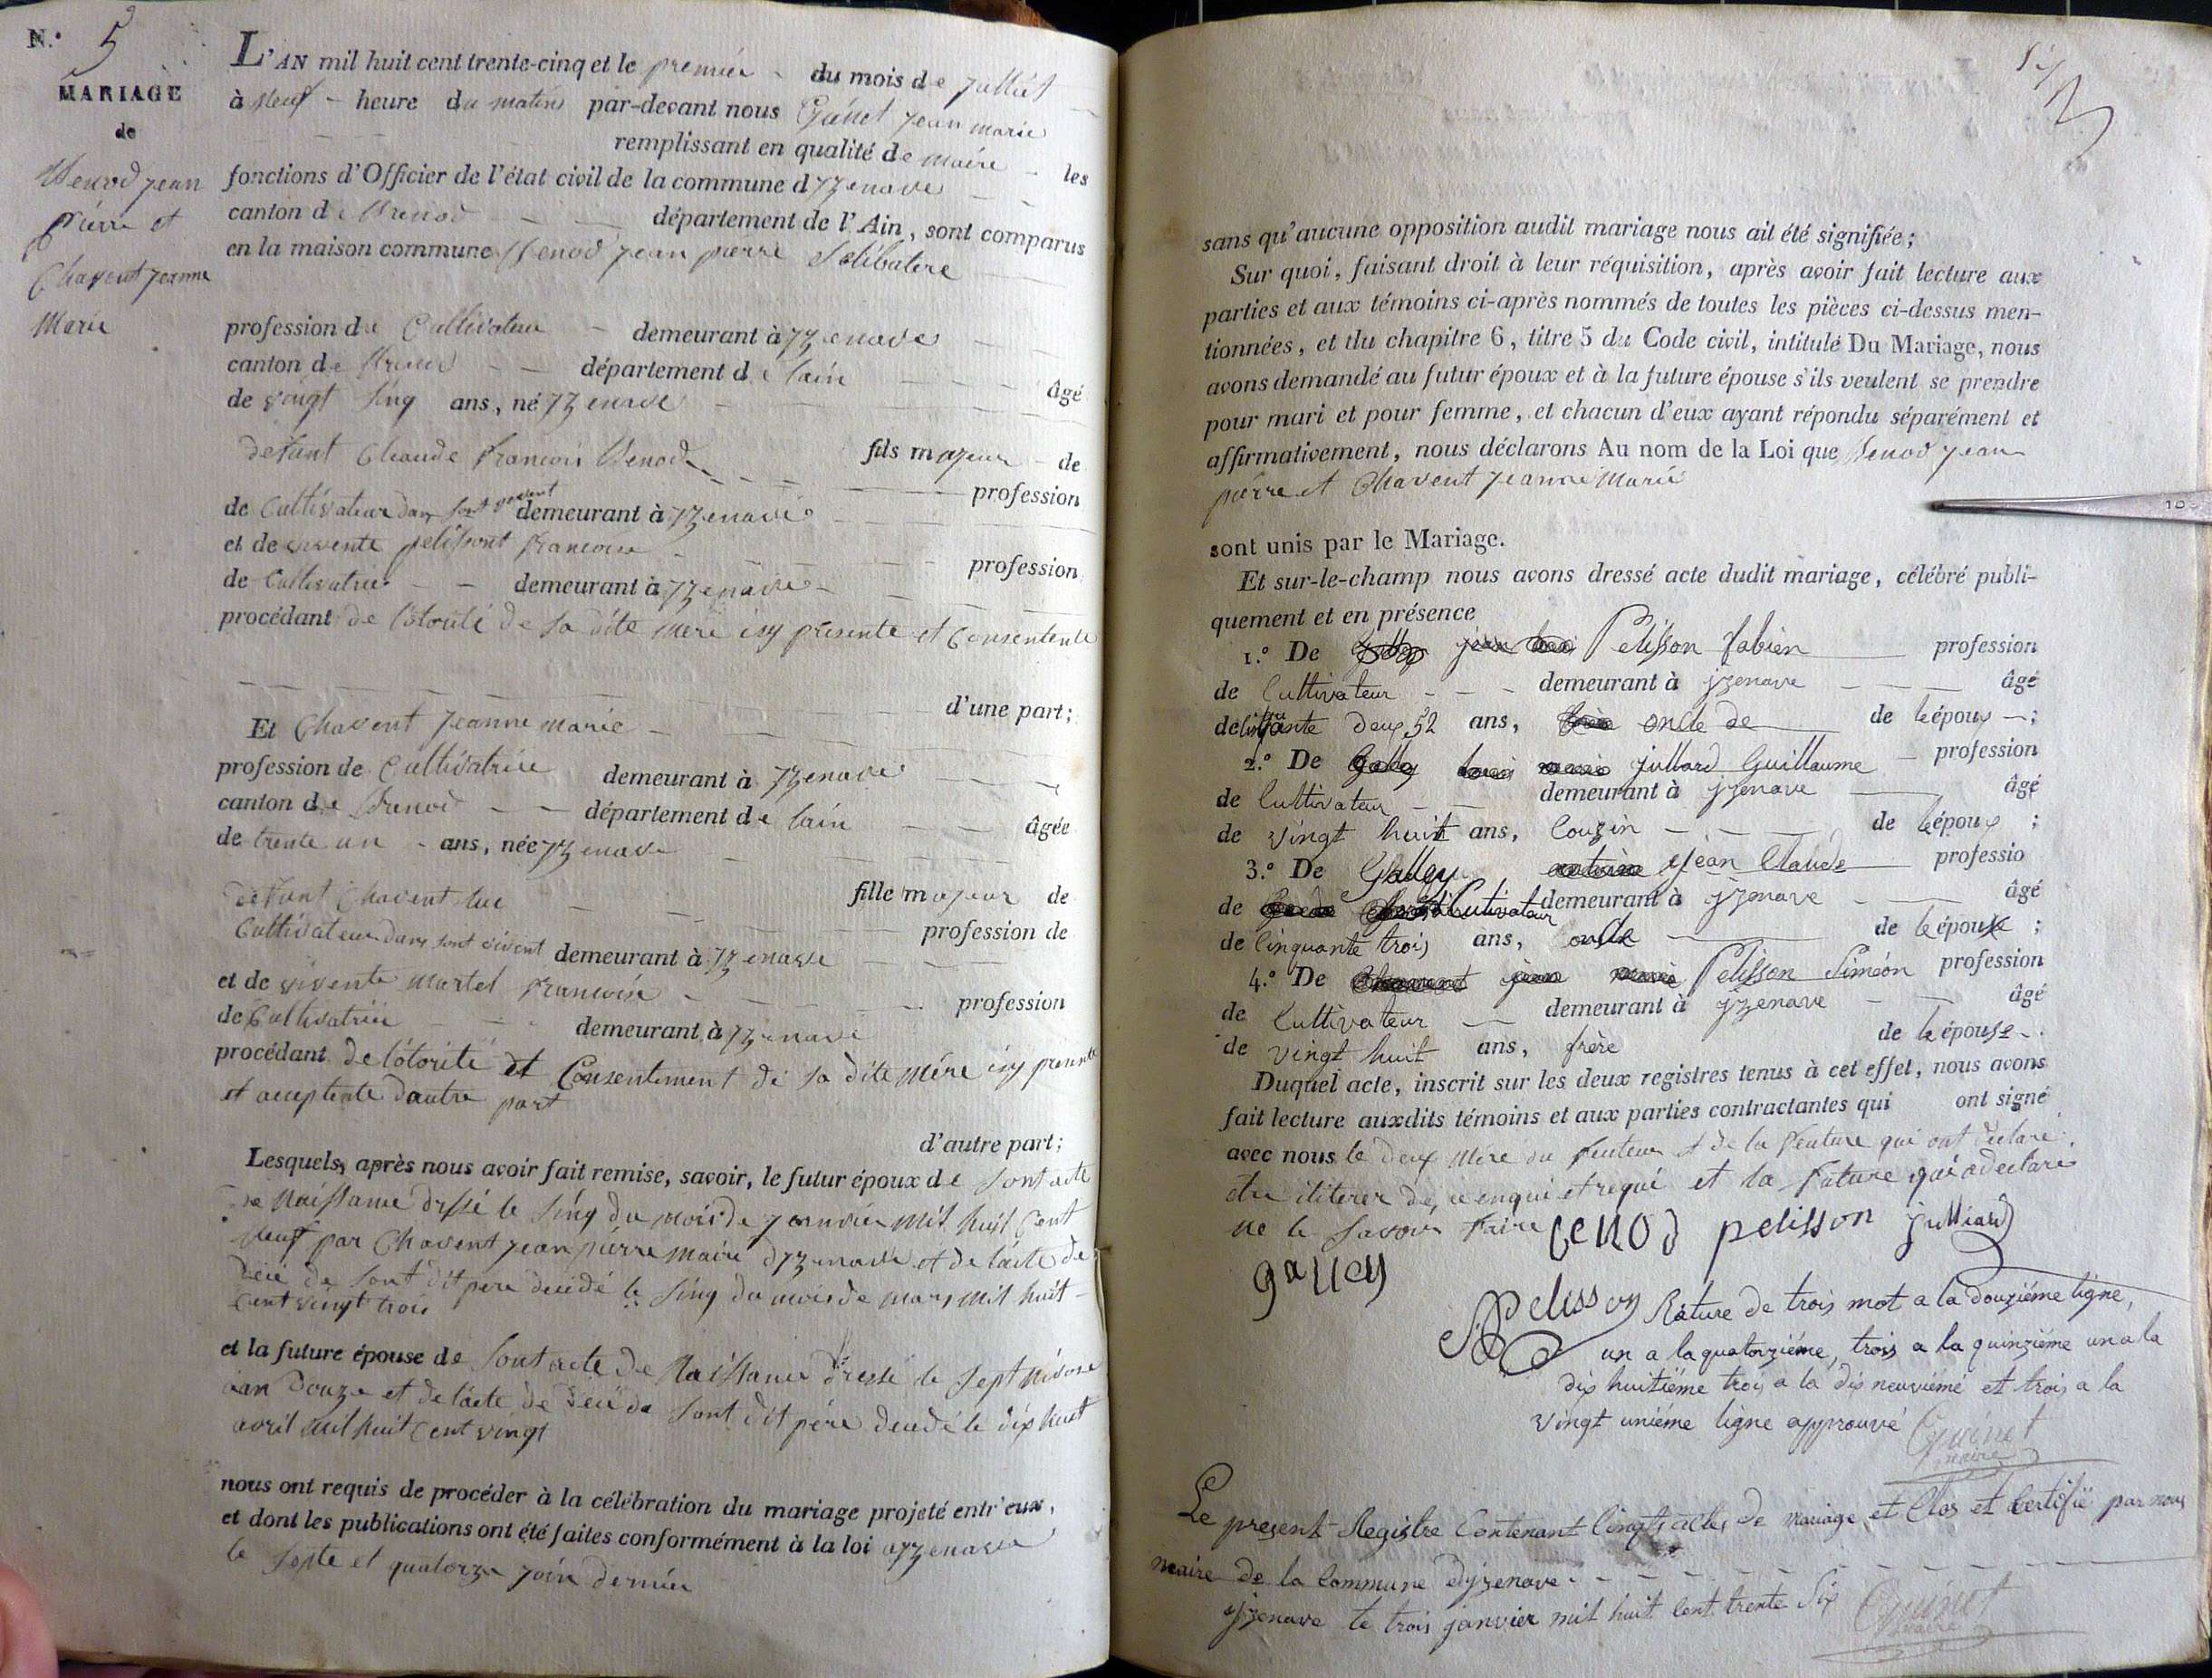 N.° 5
MARIAGE
de
Venod jean
pierre et
Chavent jeanne
Marie
L'AN mil huit cent trente-cinq et le premier du mois de juillet
à neuf heure du matin par-devant nous Guinet jean marie
remplissant en qualité de maire les
fonctions d'Officier de l'état civil de la commune d yzenave
canton de Brenod département de l'Ain, sont comparus
en la maison commune Venod jean pierre Selibatere
profession de Cultivateur demeurant à yzenave
canton de Brenod département de lain âgé
de vingt sinq ans, né yzenave
fils majeur de
defunt Claude francois Venod profession
de Cultivateur dans sont vivent demeurant à yzenave
et de vivente pelissont francoise profession
de Cultivatrice demeurant à yzenave
procédant de lotorité de sa dite mere isy presente et Consentente
d'une part;
Et Chavent jeanne marie
profession de Cultivatrice demeurant à yzenave
canton de Brenod département de lain âgée
de trente un ans, née yzenave
fille majeur de
defunt Chavent luc profession de
Cultivateur dans sont vivent demeurant à yzenave
et de vivente Martel francoise profession
de Cultivatrice demeurant à yzenave
procédant de lotorité et Consentement de sa dite mére isy presente
et aceptente dautre part
d'autre part;
Lesquels, après nous avoir fait remise, savoir, le futur époux de sont acte
de Naissance dressé le sinq du mois de janvier mil huit Cent
neuf par Chavent jean pierre maire dyzenave et de lacte de
décé de sont dit pere décédé le sinq du mois de mars mil huit
cent vingt trois
et la future épouse de sont acte de Naissance dressé le sept nivose
an douze et de lacte de décé de sont dit pére décédé le dix huit
avril mil huit Cent vingt
nous ont requis de procéder à la célébration du mariage projeté entr'eux,
et dont les publications ont été faites conformément à la loi ayzenave
le septe et quatorze join dernier
sans qu'aucune opposition audit mariage nous ait été signifiée;
Sur quoi, faisant droit à leur réquisition, après avoir fait lecture aux
parties et aux témoins ci-après nommés de toutes les pièces ci-dessus men-
tionnées, et du chapitre 6, titre 5 du Code civil, intitulé Du Mariage, nous
avons demandé au futur époux et à la future épouse s'ils veulent se prendre
pour mari et pour femme, et chacun d'eux ayant répondu séparément et
affirmativement, nous déclarons Au nom de la Loi que Venod jean
pierre et Chavent jeanne Marie
sont unis par le Mariage.
Et sur-le-champ nous avons dressé acte dudit mariage, célébré publi-
quement et en présence
1.° De Pelisson fabien profession
de Cultivateur demeurant à yzenave âgé
de deux 52 ans, oncle de de l'époux;
2.° De julliard Guillaume profession
de Cultivateur demeurant à yzenave âgé
de vingt huit ans, Couzin de l'époux;
3.° De Galley jean Claude professio
de Cultivateur demeurant à yzenave âgé
de Cinquante trois ans, oncle de l'épouse;
4.° De Pelisson Siméon profession
de Cultivateur demeurant à yzenave âgé
de vingt huit ans, frère de l'épouse.
Duquel acte, inscrit sur les deux registres tenus à cet effet, nous avons
fait lecture auxdits témoins et aux parties contractantes qui ont signé
avec nous le deux Mére du feuteur et de la feuture qui ont déclaré
etre iliterer de ce enqui et requi et la future qui a declaré
ne le savoir faire Venod pelisson julliard
galley
Pelisson Rature de trois mot a la douziéme ligne,
un a la quatorziéme, trois a la quinziéme un a la
dix huitiéme trois a la dix neuviémé et trois a la
vingt uniéme ligne approuvé Guinet
maire
Le present Registre Contenant Cinqts actes de mariage, et Clos et Certifié par nous
maire de la Commune dyzenave
yzenave le trois janvier mil huit cent trente six Guinet
maire